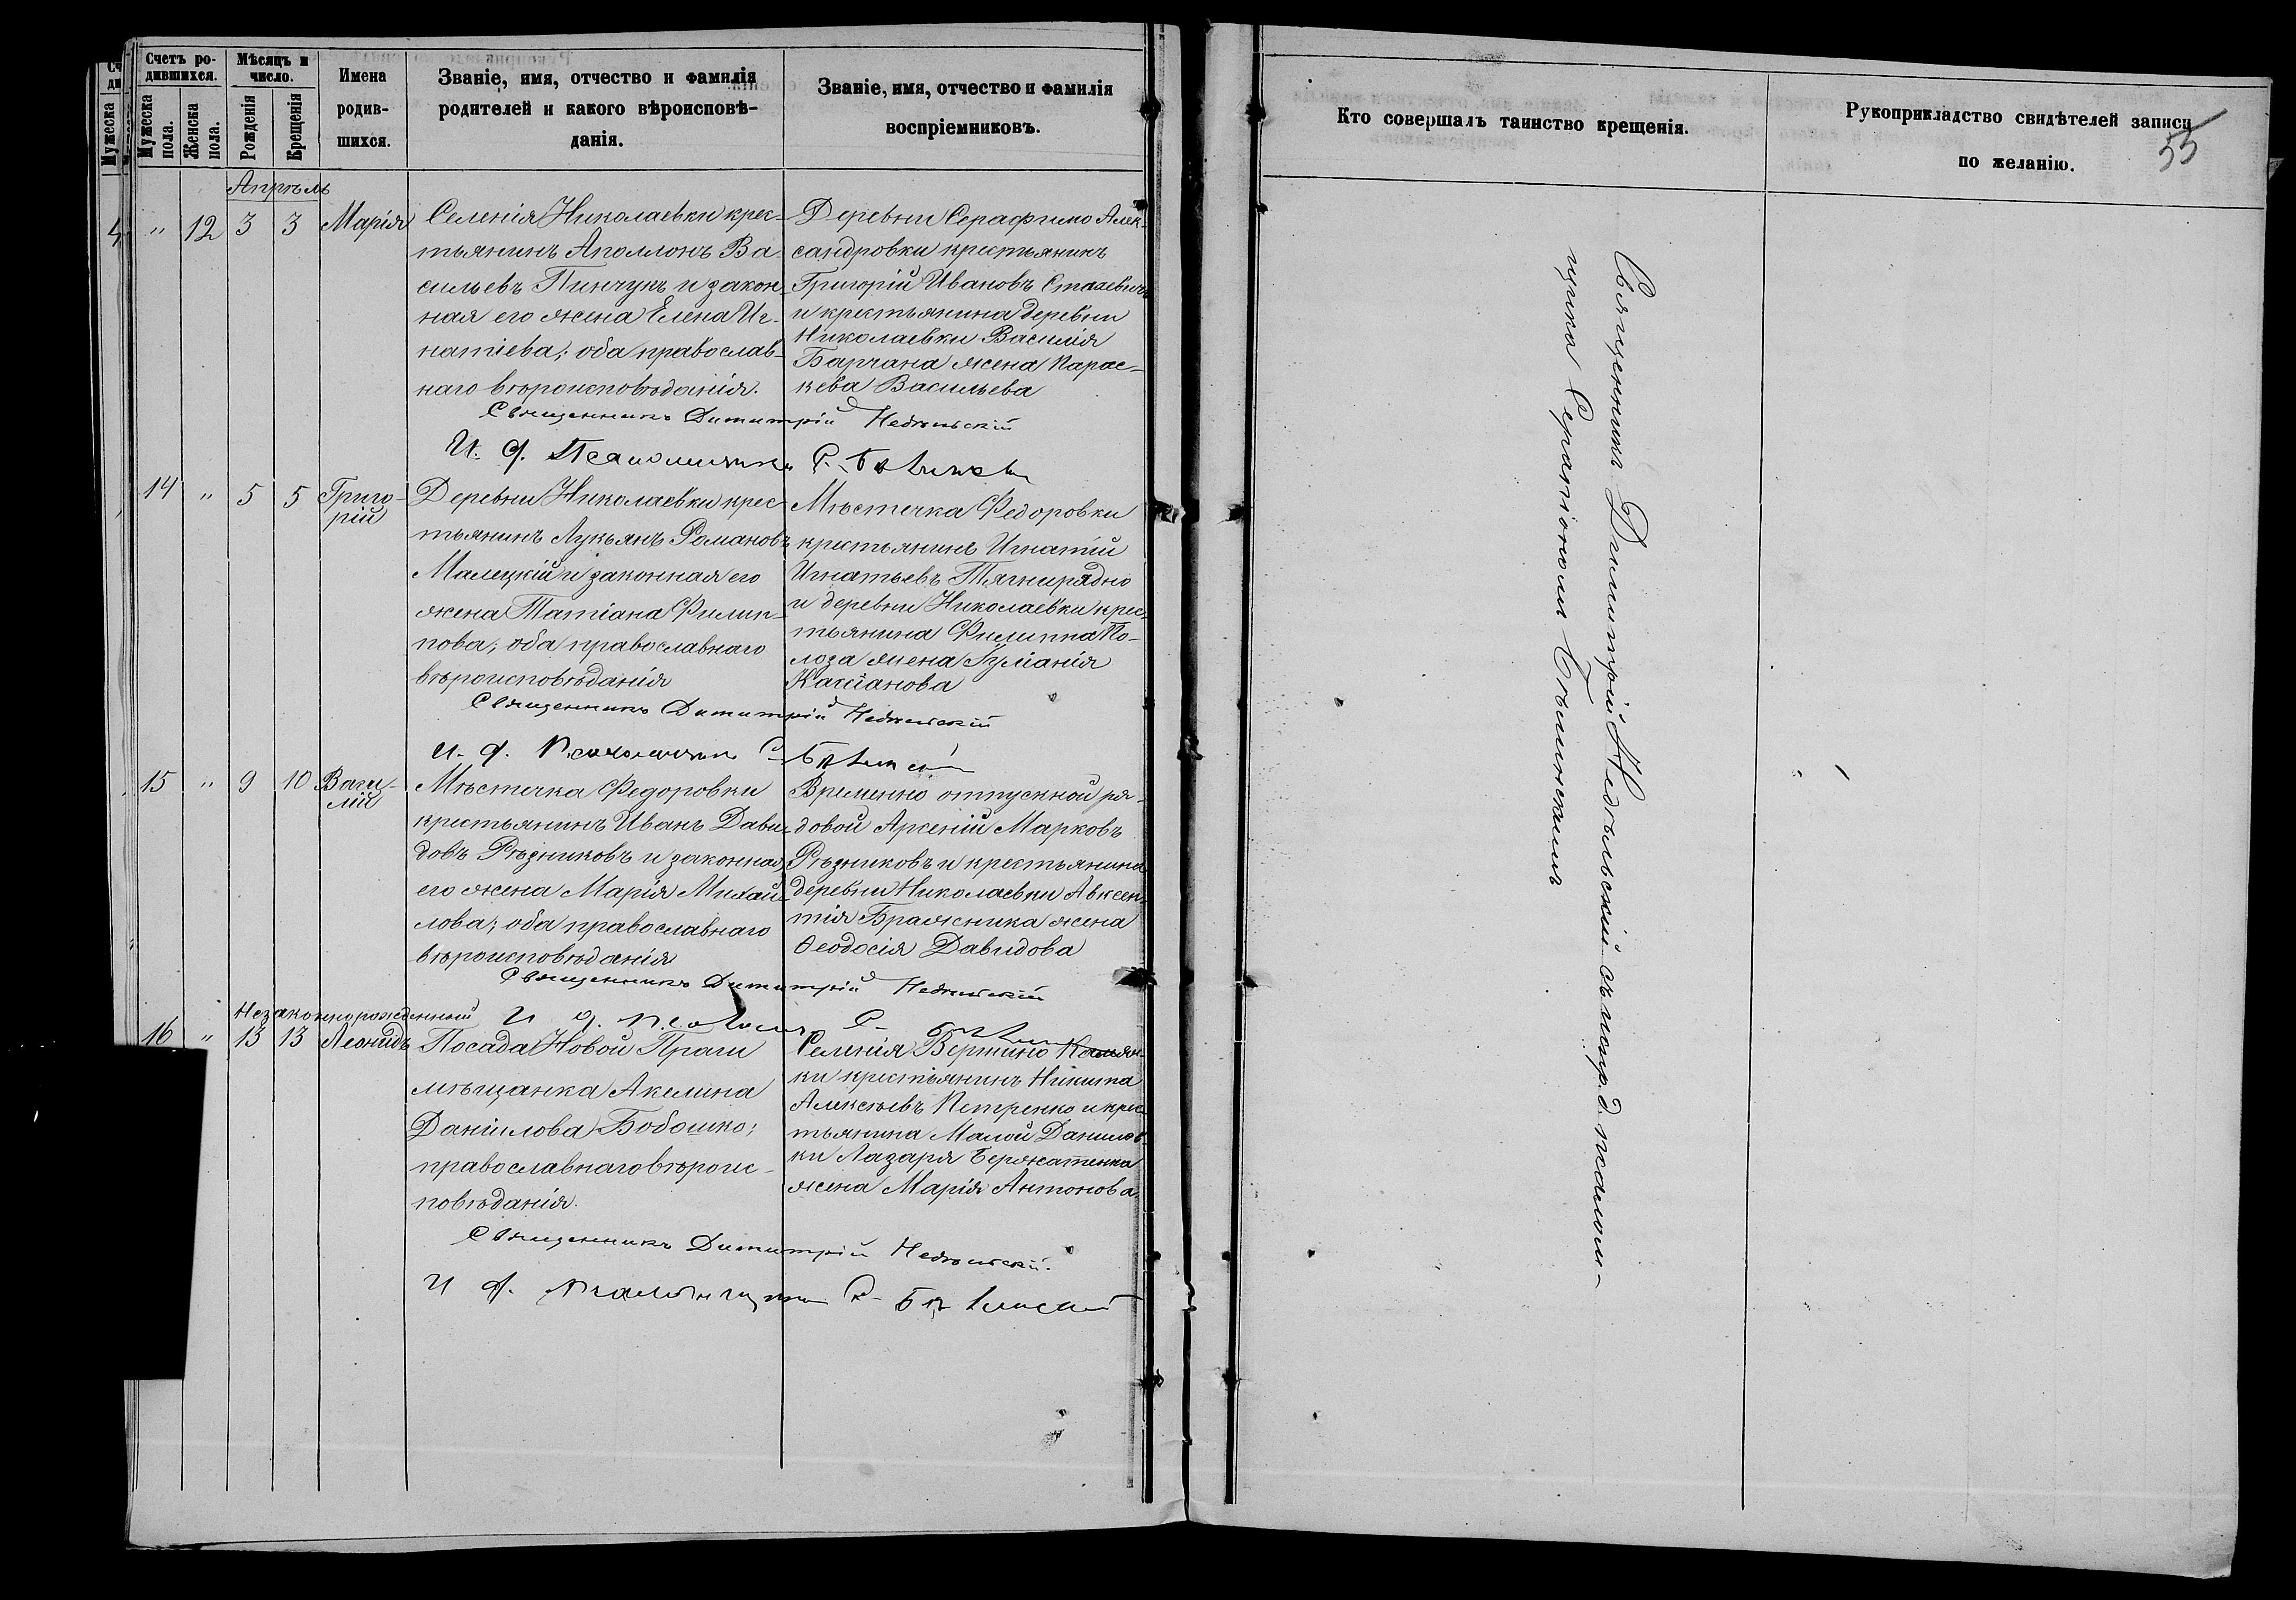 Счетъ ро-
дившихся.
Мѣсяцъ и
число.
Мужеска
пола.
Женска
пола.
Рожденія
Крещенія
Имена
родив-
шихся.
Званіе, имя, отчество и фамилія
родителей и какого вѣроисповѣ-
данія.
Званіе, имя, отчество и фамилія
воспріемниковъ.
Кто совершалъ таинство крещенія.
Рукоприкладство свидѣтелей записи
по желанію.
55
Апрѣль
" 12 3 3 Марія
Селенія Николаевки крес-
тьянинъ Аполлонъ Ва-
сильевъ Пинчукъ и закон-
ная его жена Елена Иг-
натіева; оба православ-
наго вѣроисповѣданія.
Деревни Серафимо Алек-
сандровки крестьянинъ
Григорій Ивановъ Стахевичъ
и крестьянина деревни
Николаевки Василія
Барчана жена Парас-
кева Васильева
Священникъ Димитрій Недѣльскій
И. д. Псаломщика С. Бѣлинскій
14 " 5 5 Григо-
рій
Деревни Николаевки крес-
тьянинъ Лукьянъ Романовъ
Малецкій и законная его
жена Татіана Филип-
пова; оба православнаго
вѣроисповѣданія
Мѣстечка Федоровки
крестьянинъ Игнатій
Игнатьевъ Тягнирядно
и деревни Николаевки крес-
тьянина Филиппа По-
лоза жена Іуліанія
Кассіанова
Священникъ Димитрій Недѣльскій
И. д. Псаломщика С. Бѣлинскій
15 " 9 10 Васи-
лій
Мѣстечка Федоровки
крестьянинъ Иванъ Дави-
довъ Рѣзниковъ и законная
его жена Марія Михай-
лова; оба православнаго
вѣроисповѣданія
Временно отпускной ря-
довой Арсеній Марковъ
Рѣзниковъ и крестьянина
деревни Николаевки Авксен-
тія Бражника жена
Ѳеодосія Давидова
Священникъ Димитрій Недѣльскій
И. д. Псалом. С.
Незаконнорожденный
16 " 13 13 Леонидъ
Посада Новой Праги
мѣщанка Акелина
Даніилова Бобошко;
православнаго вѣроис-
повѣданія.
Селенія Вершино
ки крестьянинъ Никита
Алексѣевъ Петренко и крес-
тьянина Малой Данилов-
ки Лазаря Бержатенка
жена Марія Антонова.
Священникъ Димитрій Недѣльскій.
И д. Псаломщика С. Бѣлинскій
Священникъ Димитрій Недѣльскій съ испр. д. псалом-
щика Серапіономъ Бѣлинскимъ